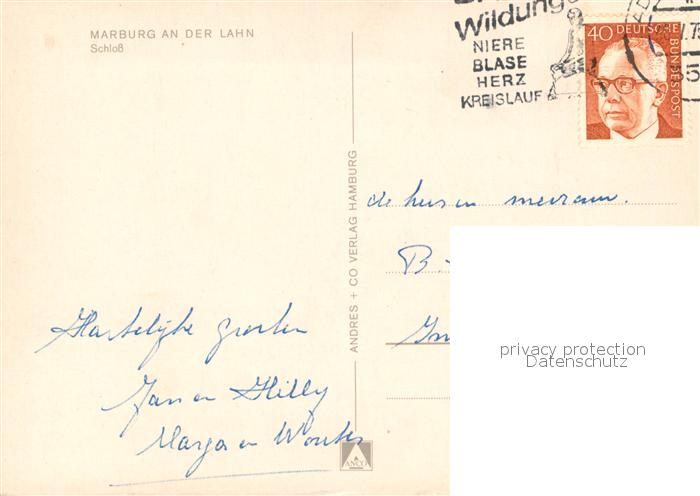 MARBURG AN DER LAHN
Schloß
Wildung
NIERE
BLASE
HERZ
KREISLAUF
40 DEUTSCHE BUNDESPOST
ANDRES + CO VERLAG HAMBURG
de heer en mevrouw.
B
privacy protection
Datenschutz
Hartelijke groeten
Jan en Hilly
Marga en Wouter
ANCO